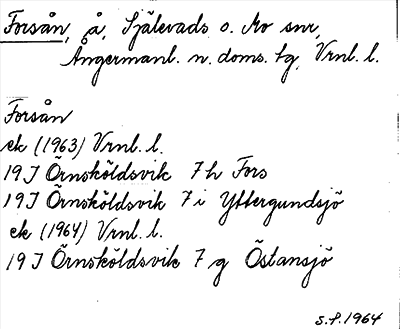 Forsån, å, Själevads o. Mo snr,
Ångermanl. n. doms. tg, Vrnl. l.
Forsån
ek (1963) Vrnl. l.
19 J Örnsköldsvik 7 h Fors
19 J Örnsköldsvik 7 i Yttergundsjö
ek (1964) Vrnl. l.
19 J Örnsköldsvik 7 g Östansjö
s.f. 1964